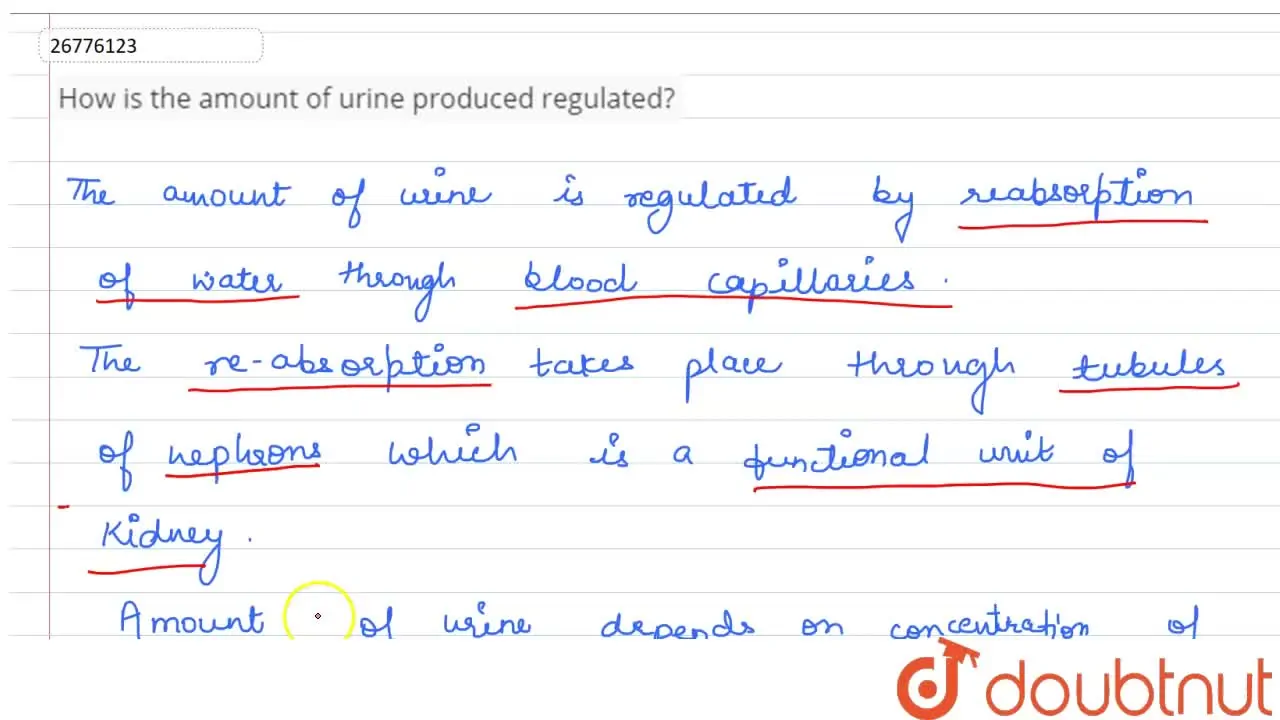 26776123
How is the amount of urine produced regulated?
The amount of urine is regulated by reabsorption
of water through blood capillaries.
The re-absorption takes place through tubules
of nephrons which is a functional unit of
Kidney.
Amount of urine depends on concentration of
doubtnut